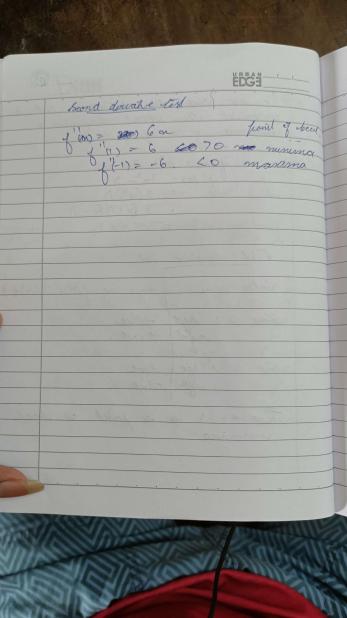 URBAN
EDGE
second derivative test
f''(x) = 6x point of local
f''(1) = 6 >0 minima
f''(-1) = -6 <0 maxima